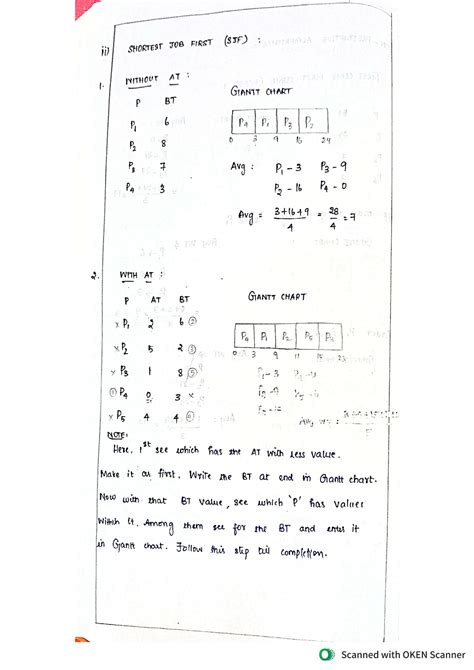 ii) SHORTEST JOB FIRST (SJF) :
1. WITHOUT AT :
P BT
P1 6
P2 8
P3 7
P4 3
GIANTT CHART
P4 P1 P3 P2
0 3 9 16 24
Avg : P1 - 3 P3 - 9
P2 - 16 P4 - 0
Avg = 3+16+9 / 4 = 28 / 4 = 7
2. WITH AT :
P AT BT
x P1 2 6 ②
x P2 5 2 ③
x P3 1 8 ⑤
① P4 0 3 x
x P5 4 4 ④
GANTT CHART
P4 P1 P2 P5 P3
0 3 9 11 15
P1 - 3
NOTE:
Here, 1st see which has the AT with less value.
Make it as first. Write the BT at end in Gantt chart.
Now with that BT value, see which 'P' has values
within it. Among them see for the BT and enter it
in Gantt chart. Follow this step till completion.
Scanned with OKEN Scanner